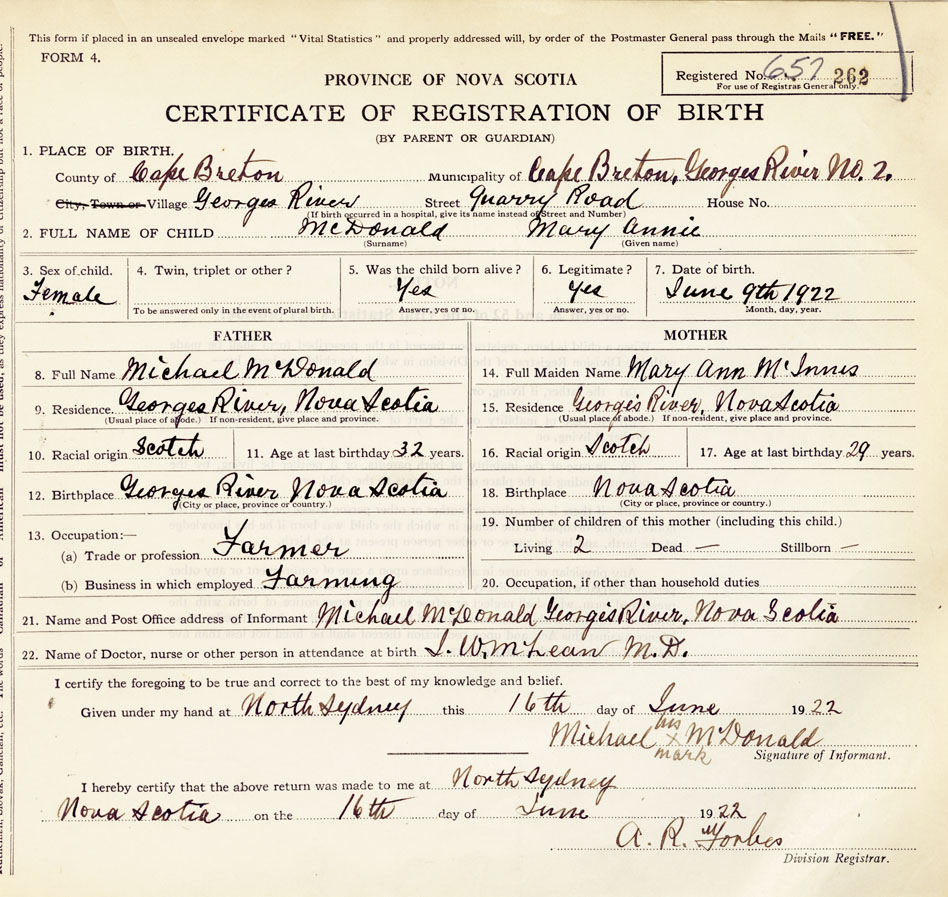 This form if placed in an unsealed envelope marked "Vital Statistics" and properly addressed will, by order of the Postmaster General pass through the Mails "FREE."
FORM 4.
Registered No. 657 262
For use of Registrar General only.
PROVINCE OF NOVA SCOTIA
CERTIFICATE OF REGISTRATION OF BIRTH
(BY PARENT OR GUARDIAN)
1. PLACE OF BIRTH.
County of Cape Breton Municipality of Cape Breton, Georges River No. 2.
City, Town or Village Georges River Street Quarry Road House No.
(If birth occurred in a hospital, give its name instead of Street and Number)
2. FULL NAME OF CHILD McDonald Mary Annie
(Surname) (Given name)
3. Sex of child. 4. Twin, triplet or other? 5. Was the child born alive? 6. Legitimate? 7. Date of birth.
Female Yes Yes June 9th 1922
To be answered only in the event of plural birth. Answer, yes or no. Answer, yes or no. Month, day, year.
FATHER MOTHER
8. Full Name Michael McDonald 14. Full Maiden Name Mary Ann McInnis
9. Residence Georges River, Nova Scotia 15. Residence Georges River, Nova Scotia
(Usual place of abode.) If non-resident, give place and province. (Usual place of abode.) If non-resident, give place and province.
10. Racial origin Scotch 11. Age at last birthday 32 years. 16. Racial origin Scotch 17. Age at last birthday 29 years.
12. Birthplace Georges River Nova Scotia 18. Birthplace Nova Scotia
(City or place, province or country.) (City or place, province or country.)
13. Occupation:— 19. Number of children of this mother (including this child.)
(a) Trade or profession Farmer Living 2 Dead — Stillborn —
(b) Business in which employed Farming 20. Occupation, if other than household duties
21. Name and Post Office address of Informant Michael McDonald Georges River, Nova Scotia
22. Name of Doctor, nurse or other person in attendance at birth J. W. McLean M.D.
I certify the foregoing to be true and correct to the best of my knowledge and belief.
Given under my hand at North Sydney this 16th day of June 1922
Michael his x mark McDonald
Signature of Informant.
I hereby certify that the above return was made to me at North Sydney
Nova Scotia on the 16th day of June 1922
A. R. Forbes
Division Registrar.